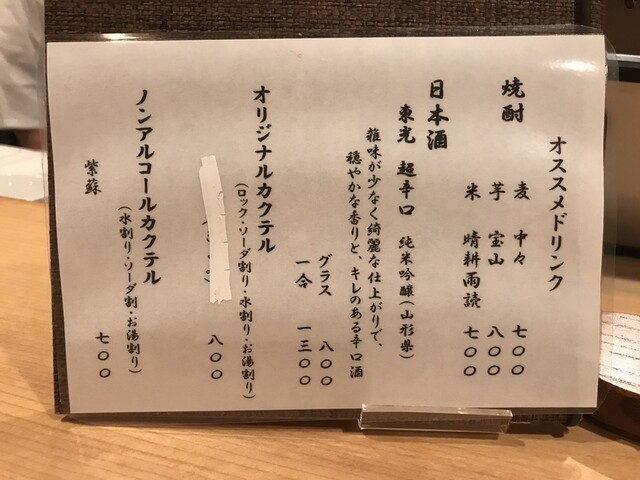 オススメドリンク
焼酎
麦 中々 七〇〇
芋 宝山 八〇〇
米 晴耕雨読 七〇〇
日本酒
東光 超辛口 純米吟醸(山形県)
雑味が少なく綺麗な仕上がりで、
穏やかな香りと、キレのある辛口酒
グラス 八〇〇
一合 一三〇〇
オリジナルカクテル
(ロック・ソーダ割り・水割り・お湯割り)
八〇〇
ノンアルコールカクテル
(水割り・ソーダ割・お湯割り)
紫蘇 七〇〇